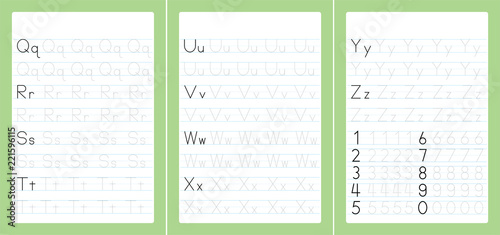 Qq Qq Qq Qq Qq
Qq Qq Qq Qq Qq
Rr Rr Rr Rr Rr
Rr Rr Rr Rr Rr
Ss Ss Ss Ss Ss
Ss Ss Ss Ss Ss
Tt Tt Tt Tt Tt
Tt Tt Tt Tt Tt
Uu Uu Uu Uu Uu
Uu Uu Uu Uu Uu
Vv Vv Vv Vv Vv
Vv Vv Vv Vv Vv
Ww Ww Ww Ww Ww
Ww Ww Ww Ww Ww
Xx Xx Xx Xx Xx
Xx Xx Xx Xx Xx
Yy Yy Yy Yy Yy
Yy Yy Yy Yy Yy
Zz Zz Zz Zz Zz
Zz Zz Zz Zz Zz
1 1 1 1 1 6 6 6 6 6
2 2 2 2 2 7 7 7 7 7
3 3 3 3 3 8 8 8 8 8
4 4 4 4 4 9 9 9 9 9
5 5 5 5 5 0 0 0 0 0
221596115